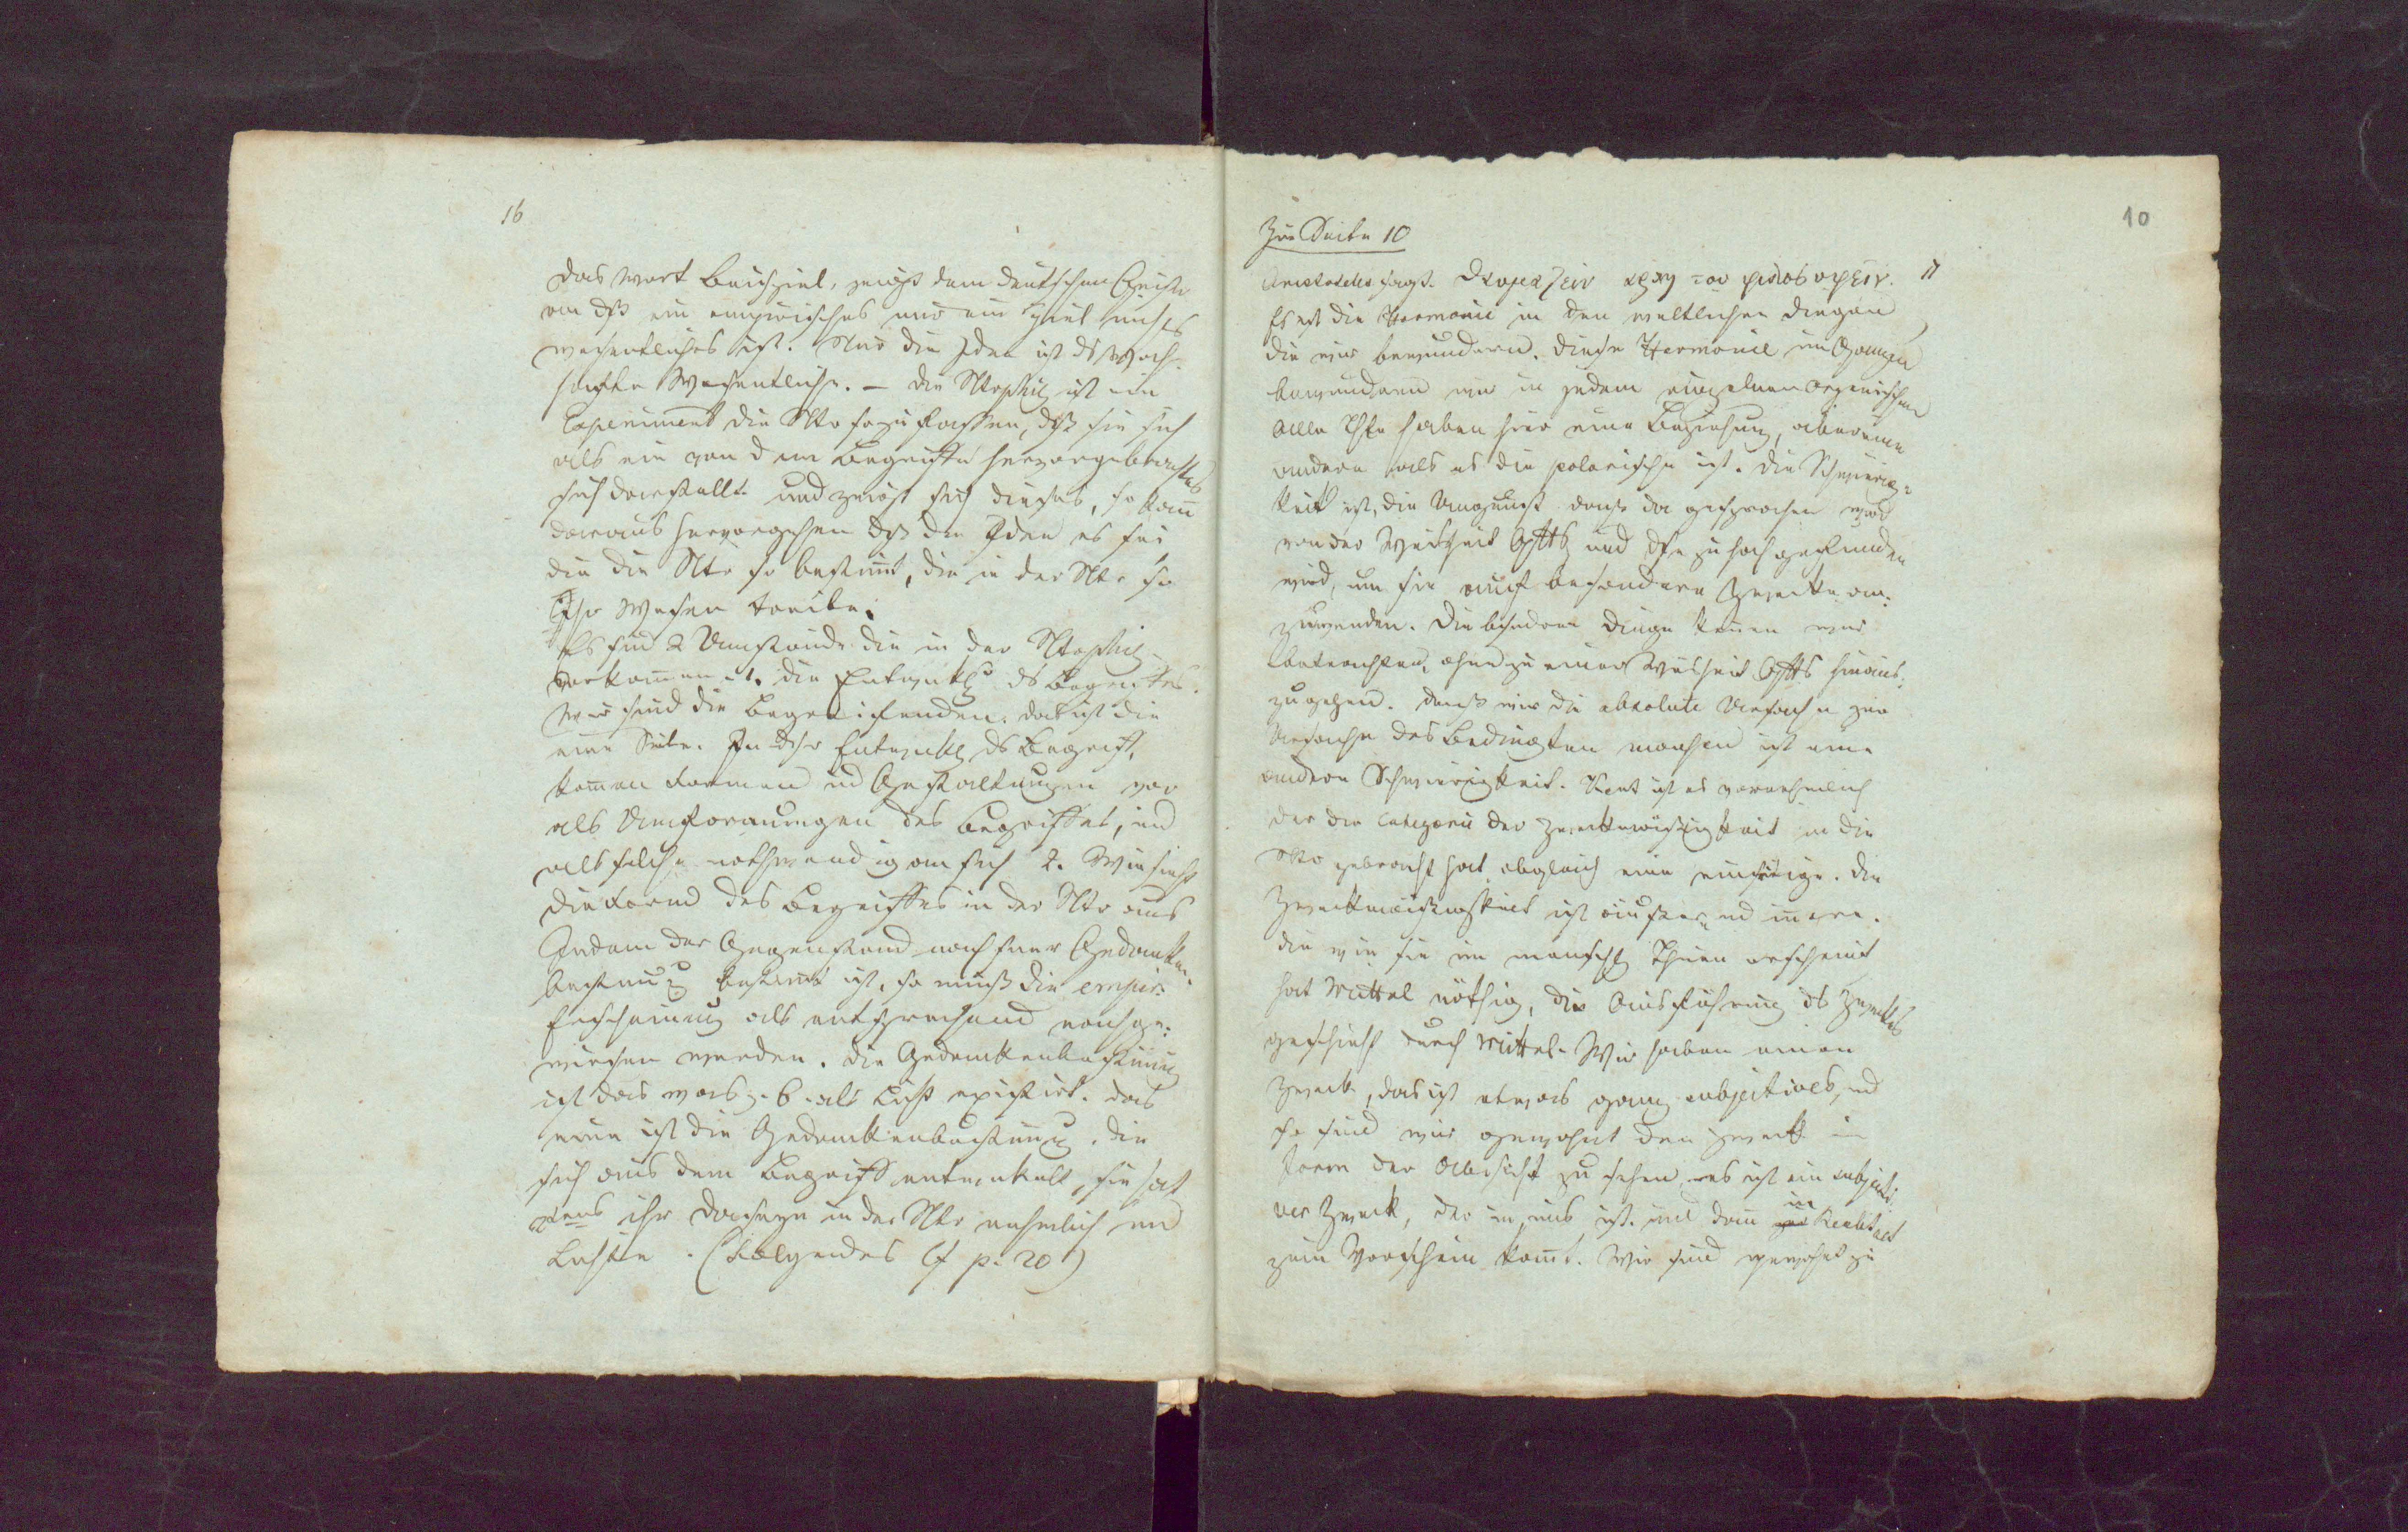 16
das Wort Beispiel, zeigt dem deutschen Geiste
an dß ein empirisches nur ein Spiel nichts
wesentliches ist. Nur die Idee ist ds Wahr-
hafte Wesentliche. – Die Ntrphil ist ein
Experiment die Ntr so zu fassen, dß sie sich
als ein von dem Begriffe hervorgebrachtes
sich darstellt. und zeigt sich dieses, so kann
daraus hervorgehen dß die Idee es sei
die die Ntr so bestimt, die in der Ntr so
Ihr Wesen treibe.
Es sind 2 Umstände die in der Ntrphil
vorkommen. 1. die Entwiklg ds Begriffes.
Wir sind die Begreifenden. das ist die
eine Seite. In dsr Entwiklg ds Begriffs
kommen Formen und Gestaltungen vor
als Umformungen des Begriffes, und
als solche nothwendig an sich 2. Wie sieht
die Form des Begriffes in der Ntr aus
Indem der Gegenstand nach sner Gedanken-
bestimg bestimt ist, so muß die empir.
Erscheinung als entsprechend nachge-
wiesen werden. die Gedankenbestimung
ist das was z. B. als Licht existirt. das
eine ist die Gedankenbestimung. die
sich aus dem Begriff entwikelt, sie hat
2tens ihr Daseyn in der Ntr nehmlich im
Lichte. (Folgendes cf p. 20)
10
Zur Seite 10
17
Aristoteles sagt. θαυμαζειν αρχη του φιλοσοφειν.
Es ist die Harmonie in den weltlichen Dingen
die wir bewundern. Diese Harmonie im Ganzen
bewundern wir in jedem einzelnen organischen
Alle Thle haben hier eine Beziehung, aber eine
andere als es die polarische ist. Die Schwierig-
keit ist, die Vernunft daß da gesprochen wird
von der Weisheit Gtts und dse zu hoch gefunden
wird, um sie auf besondere Zwecke an-
zuwenden. Die besondern Dinge können wir
betrachten, ohne zu einer Weisheit Gotts hinaus-
zugehen. daß wir die absolute Ursache zur
Ursache des Bedingten machen ist eine
andere Schwierigkeit. Kant ist es vornehmlich
der die Categorie der Zweckmäßigkeit in die
Ntr gebracht hat, obgleich eine einseitige. Die
Zweckmäßigkeit ist äußere und innere.
die wie sie im menschl Thun erscheint
hat Mittel nöthig, die Ausführung ds Zweckes
geschieht durch Mittel. Wir haben einen
Zweck, das ist etwas ganz subjectives, und
so sind wir gewohnt den Zweck in
Form der Absicht zu sehen, es ist ein subjecti-
ver Zweck, der in uns ist. und dann in Realität
zum Vorschein komt. Wir sind gewohnt zu